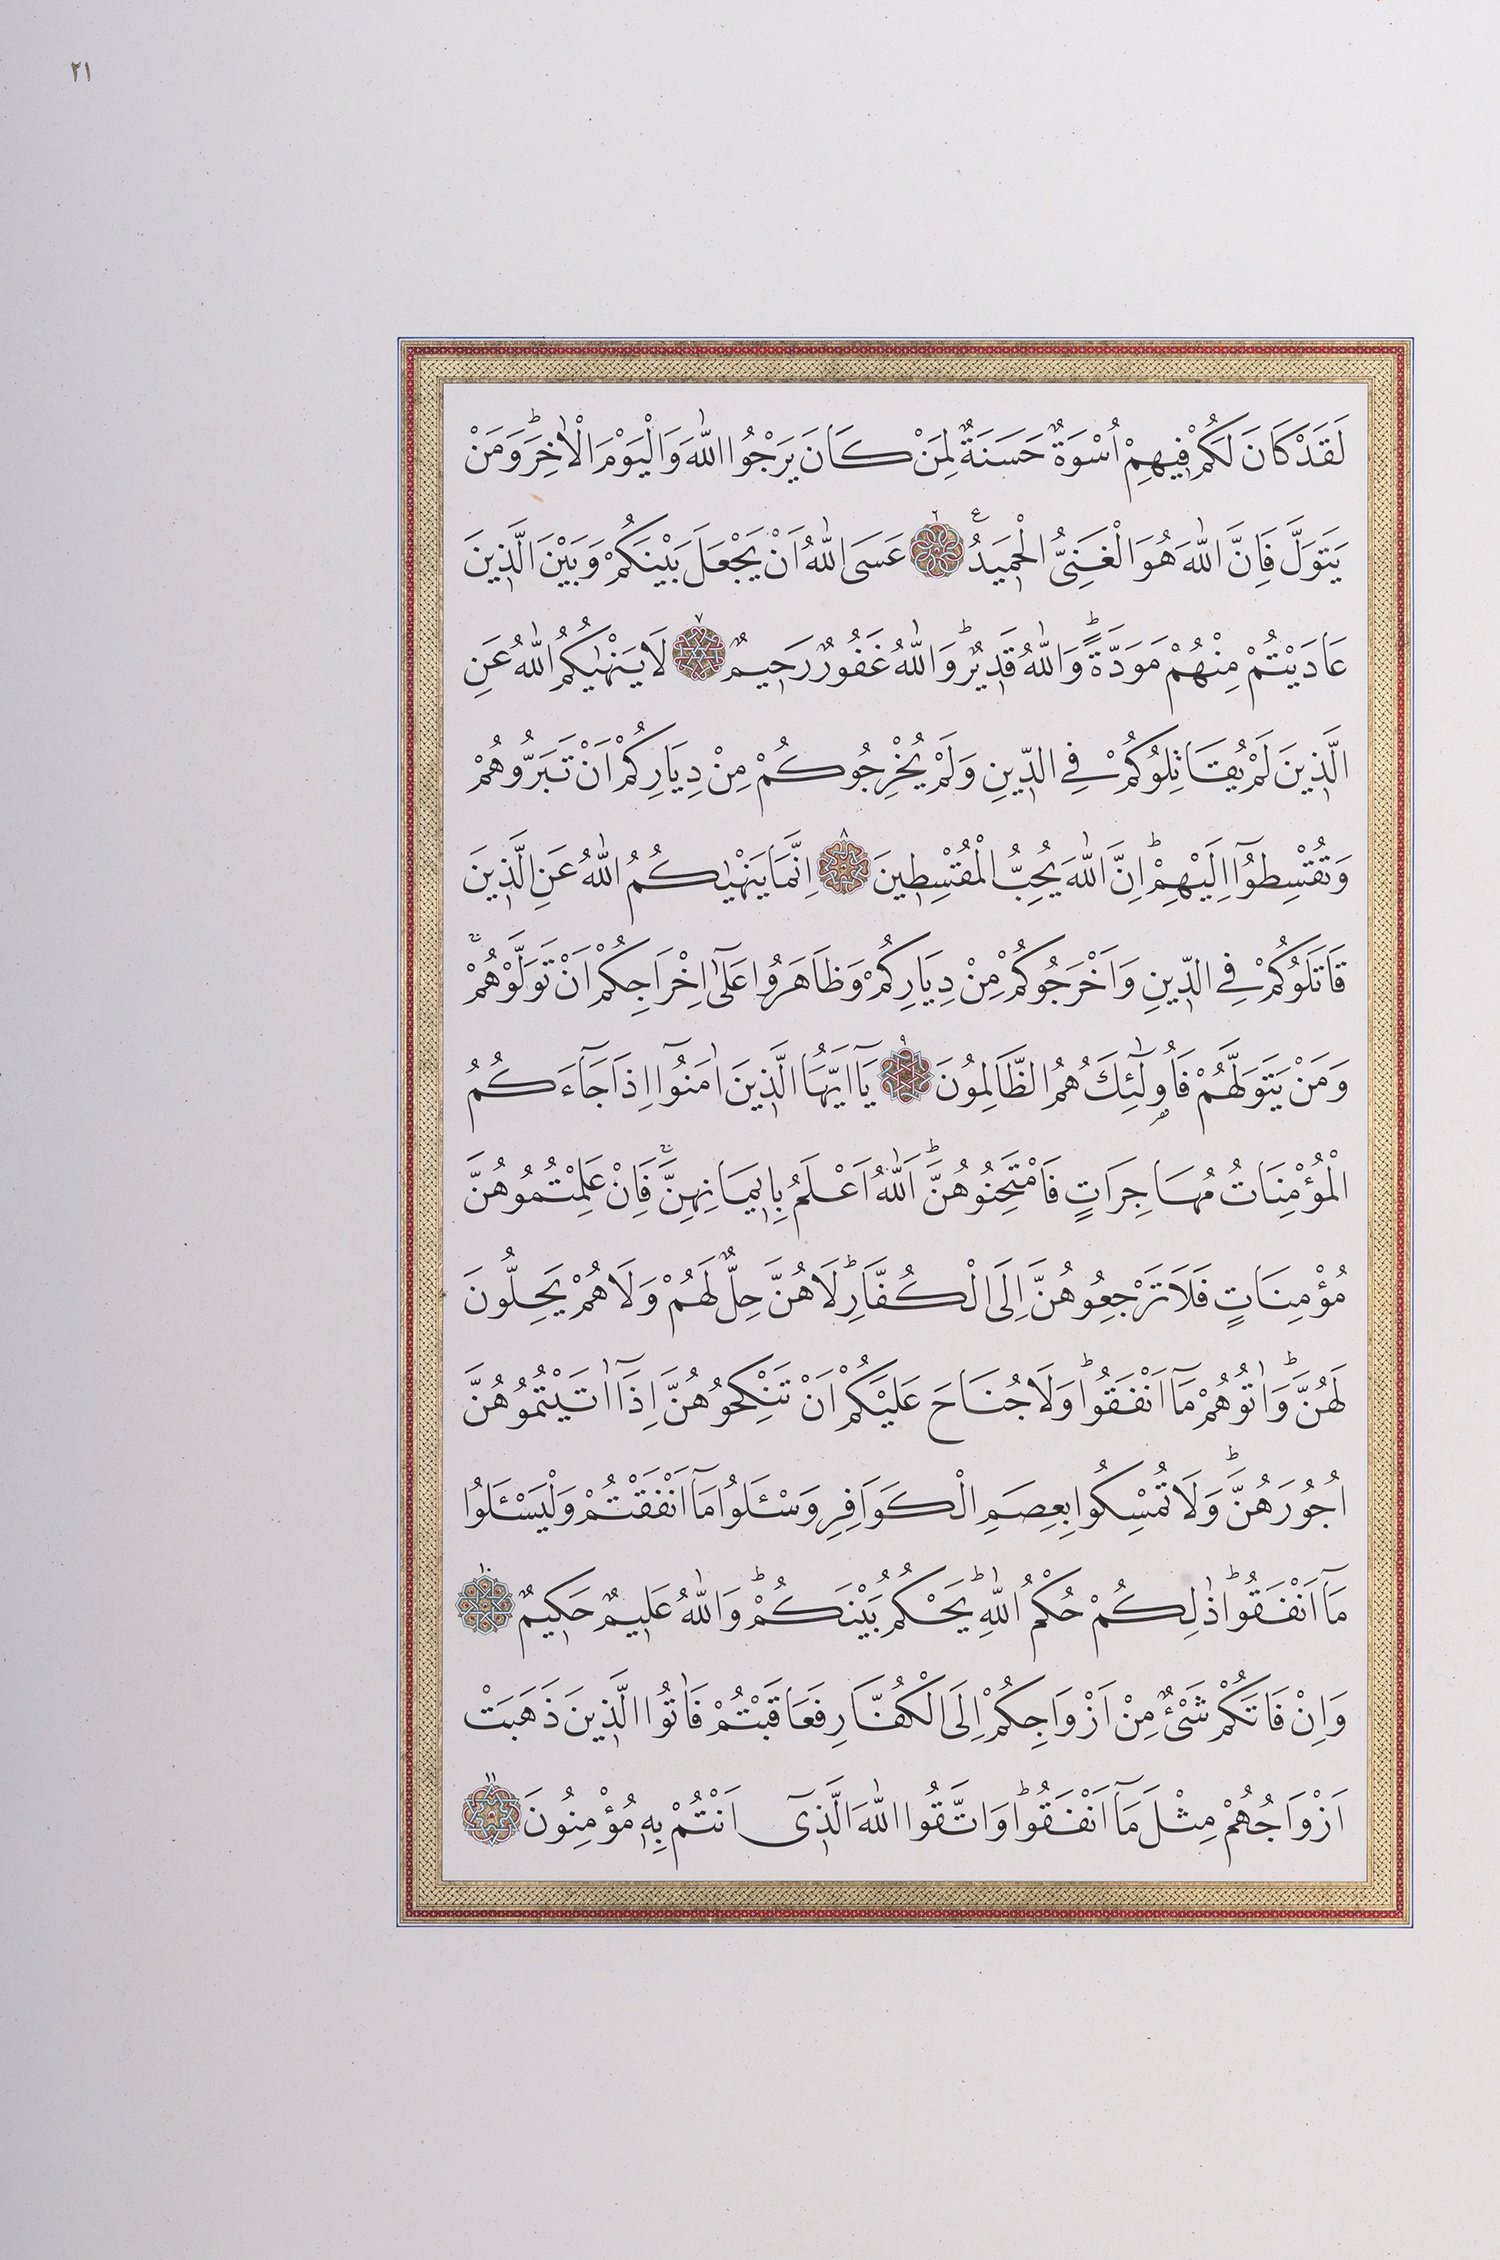 ٢١
لَقَدْ كَانَ لَكُمْ فِيهِمْ اُسْوَةٌ حَسَنَةٌ لِمَنْ كَانَ يَرْجُوا اللّٰهَ وَالْيَوْمَ الْاٰخِرَؕ وَمَنْ
يَتَوَلَّ فَاِنَّ اللّٰهَ هُوَ الْغَنِىُّ الْحَمِيدُࣖ ٦ عَسَى اللّٰهُ اَنْ يَجْعَلَ بَيْنَكُمْ وَبَيْنَ الَّذِينَ
عَادَيْتُمْ مِنْهُمْ مَوَدَّةًؕ وَاللّٰهُ قَدِيرٌؕ وَاللّٰهُ غَفُورٌ رَحِيمٌ ٧ لَا يَنْهٰيكُمُ اللّٰهُ عَنِ
الَّذِينَ لَمْ يُقَاتِلُوكُمْ فِي الدِّينِ وَلَمْ يُخْرِجُوكُمْ مِنْ دِيَارِكُمْ اَنْ تَبَرُّوهُمْ
وَتُقْسِطُوٓا اِلَيْهِمْؕ اِنَّ اللّٰهَ يُحِبُّ الْمُقْسِطِينَ ٨ اِنَّمَا يَنْهٰيكُمُ اللّٰهُ عَنِ الَّذِينَ
قَاتَلُوكُمْ فِي الدِّينِ وَاَخْرَجُوكُمْ مِنْ دِيَارِكُمْ وَظَاهَرُوا عَلٰٓى اِخْرَاجِكُمْ اَنْ تَوَلَّوْهُمْۚ
وَمَنْ يَتَوَلَّهُمْ فَاُو۬لٰٓئِكَ هُمُ الظَّالِمُونَ ٩ يَٓا اَيُّهَا الَّذِينَ اٰمَنُوٓا اِذَا جَٓاءَكُمُ
الْمُؤْمِنَاتُ مُهَاجِرَاتٍ فَامْتَحِنُوهُنَّؕ اَللّٰهُ اَعْلَمُ بِاِيمَانِهِنَّۚ فَاِنْ عَلِمْتُمُوهُنَّ
مُؤْمِنَاتٍ فَلَا تَرْجِعُوهُنَّ اِلَى الْكُفَّارِؕ لَا هُنَّ حِلٌّ لَهُمْ وَلَا هُمْ يَحِلُّونَ
لَهُنَّؕ وَاٰتُوهُمْ مَٓا اَنْفَقُواؕ وَلَا جُنَاحَ عَلَيْكُمْ اَنْ تَنْكِحُوهُنَّ اِذَٓا اٰتَيْتُمُوهُنَّ
اُجُورَهُنَّؕ وَلَا تُمْسِكُوا بِعِصَمِ الْكَوَافِرِ وَسْـَٔلُوا مَٓا اَنْفَقْتُمْ وَلْيَسْـَٔلُوا
مَٓا اَنْفَقُواؕ ذٰلِكُمْ حُكْمُ اللّٰهِؕ يَحْكُمُ بَيْنَكُمْؕ وَاللّٰهُ عَلِيمٌ حَكِيمٌ ١٠
وَاِنْ فَاتَكُمْ شَيْءٌ مِنْ اَزْوَاجِكُمْ اِلَى الْكُفَّارِ فَعَاقَبْتُمْ فَاٰتُوا الَّذِينَ ذَهَبَتْ
اَزْوَاجُهُمْ مِثْلَ مَٓا اَنْفَقُواؕ وَاتَّقُوا اللّٰهَ الَّذِٓى اَنْتُمْ بِهِ مُؤْمِنُونَ ١١